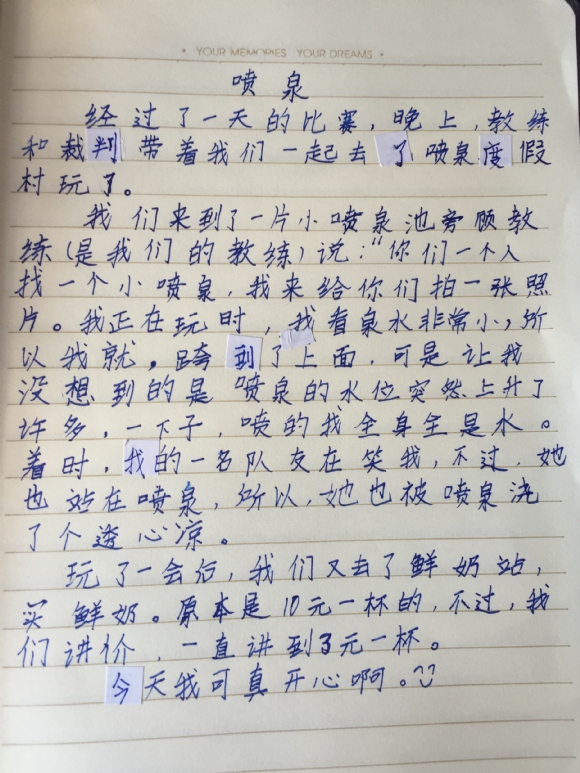 YOUR MEMORIES YOUR DREAMS
喷泉
经过了一天的比赛，晚上，教练
和裁判带着我们一起去了喷泉度假
村玩了。
我们来到了一片小喷泉池旁顾教
练（是我们的教练）说：“你们一个人
找一个小喷泉，我来给你们拍一张照
片。我正在玩时，我看泉水非常小，所
以我就，跨到了上面，可是让我
没想到的是喷泉的水位突然上升了
许多，一下子，喷的我全身全是水。
着时，我的一名队友在笑我，不过，她
也站在喷泉，所以，她也被喷泉浇
了个透心凉。
玩了一会后，我们又去了鲜奶站，
买鲜奶。原本是10元一杯的，不过，我
们讲价，一直讲到3元一杯。
今天我可真开心啊。